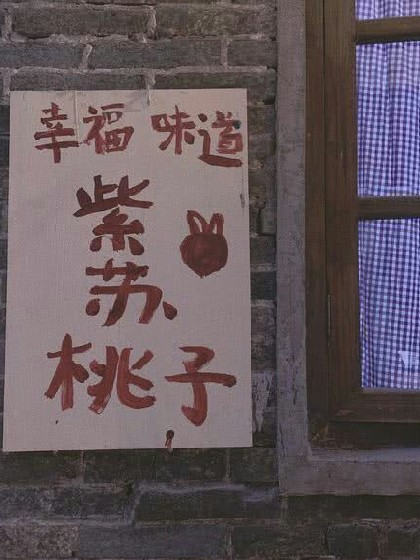 幸福 味道
紫
苏
桃子